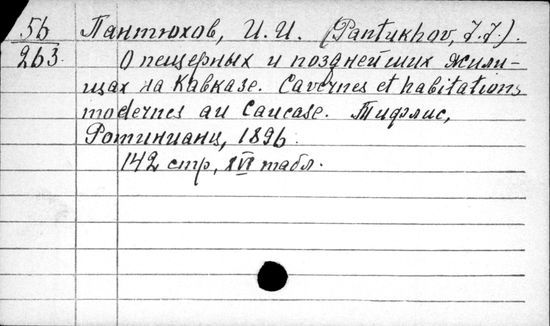 56 Пантюхов, И. И. (Pantukhov, J. J.).
263. О пещерных и позднейших жили-
щах на Кавказе. Cavernes et habitations
modernes au Caucase. Тифлис,
Ротинианц, 1896.
142 стр., XVI табл.